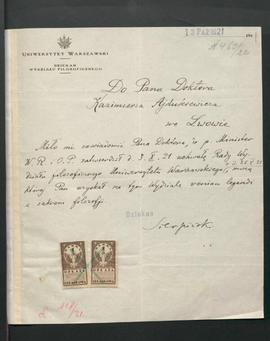 UNIWERSYTET WARSZAWSKI
DZIEKAN
WYDZIAŁU FILOZOFICZNEGO
13 PAŹ 1921
Do Pana Doktora
Kazimierza Ajdukiewicza
we Lwowie
Miło mi zawiadomić Pana Doktora, że p. Minister
W. R. i O. P. zatwierdził d. 3. X. 21 uchwałę Rady Wy-
działu filozoficznego Uniwersytetu Warszawskiego, mocą
której Pan uzyskał na tym Wydziale veniam legendi
z zakresu filozofji
Dziekan
Sierpiński